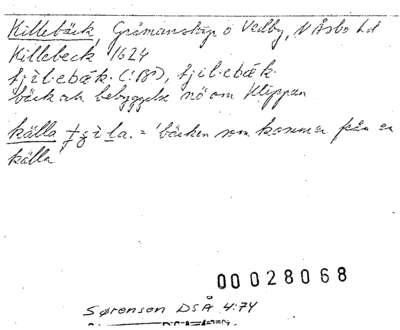 Killebäck, Gråmanstorp o Vedby, N Åsbo hd
Killebeck 1624
bäck och bebyggelse nö om Klippan
källa = 'bäcken som kommer från en
källa'
00028068
Sørensen DSÅ 4:74